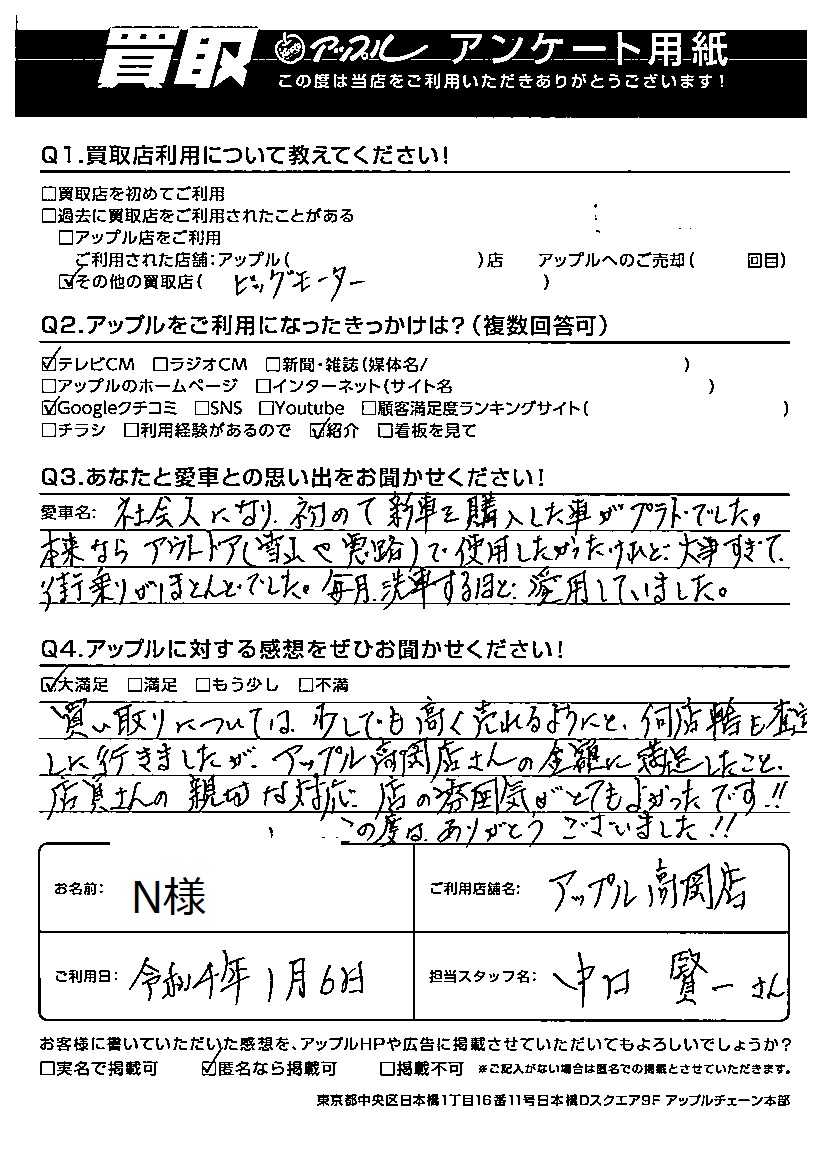 買取 アップル アンケート用紙
この度は当店をご利用いただきありがとうございます!
Q1.買取店利用について教えてください!
□買取店を初めてご利用
□過去に買取店をご利用されたことがある
□アップル店をご利用
ご利用された店舗:アップル( )店 アップルへのご売却( 回目)
☑その他の買取店( ビッグモーター )
Q2.アップルをご利用になったきっかけは?(複数回答可)
☑テレビCM □ラジオCM □新聞・雑誌(媒体名/ )
□アップルのホームページ □インターネット(サイト名 )
☑Googleクチコミ □SNS □Youtube □顧客満足度ランキングサイト( )
□チラシ □利用経験があるので ☑紹介 □看板を見て
Q3.あなたと愛車との思い出をお聞かせください!
愛車名: 社会人になり、初めて新車を購入した車がプラドでした。
本来ならアウトドア(雪山や悪路)で使用したかったけれど、大事すぎて、
街乗りがほとんどでした。毎月、洗車するほど、愛用していました。
Q4.アップルに対する感想をぜひお聞かせください!
☑大満足 □満足 □もう少し □不満
買い取りについては、少しでも高く売れるようにと、何店舗も査定
しに行きましたが、アップル高岡店さんの金額に満足したこと、
店員さんの親切な対応、店の雰囲気がとてもよかったです!!
この度は、ありがとうございました!!
お名前: N様 ご利用店舗名: アップル高岡店
ご利用日: 令和4年1月6日 担当スタッフ名: 中口 賢一さん
お客様に書いていただいた感想を、アップルHPや広告に掲載させていただいてもよろしいでしょうか?
□実名で掲載可 ☑匿名なら掲載可 □掲載不可 ※ご記入がない場合は匿名での掲載とさせていただきます。
東京都中央区日本橋1丁目16番11号日本橋Dスクエア9F アップルチェーン本部